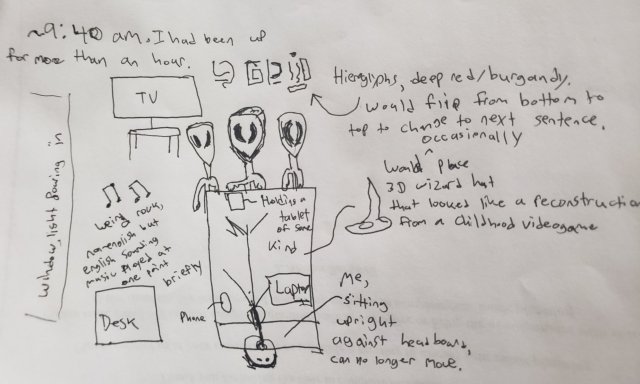 ~9:40 am. I had been up
for more than an hour.
TV
Hieroglyphs, deep red/burgandy.
would flip from bottom to
top to change to next sentence.
occasionally
would place
3D wizard hat
that looked like a reconstruction
from a childhood videogame
window, light pouring in
weird rock,
non-english but
english sounding
music played at
one point
briefly
Holding a
tablet
of some
kind
Laptop
Phone
Desk
Me,
sitting
upright
against headboard,
can no longer move.